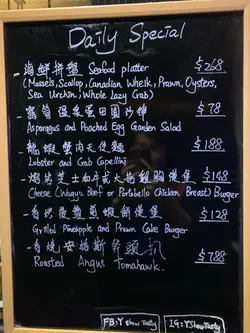 Daily Special
- 海鮮拼盤 Seafood platter $268
(Mussels, Scallop, Canadian Whelk, Prawn, Oysters,
Sea Urchin, Whole Lazy Crab)
- 露筍溫泉蛋田園沙律 $78
Asparagus and Poached Egg Garden Salad
- 龍蝦蟹肉天使麵 $188
Lobster and Crab Capellini
芝士和牛 漢堡 $148
Cheese (Wagyu Beef or Portobello Chicken Breast) Burger
蝦餅漢堡 $128
Grilled Pineapple and Prawn Cake Burger
安格斯斧頭扒 $788
Roasted Angus Tomahawk.
FB: Y show Tasty IG: YShowTasty